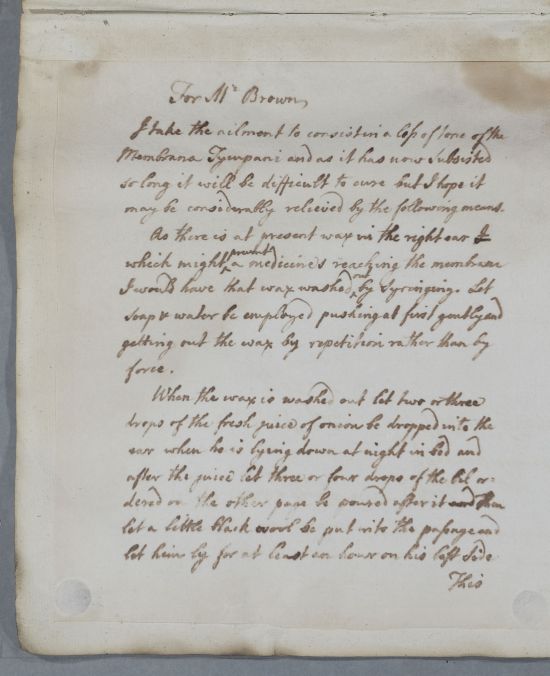 For Mr Brown,
I take the ailment to consist in a loss of tone of the
Membrana Tympani and as it has now Subsisted
so long it will be difficult to cure but I hope it
may be considerably relieved by the following means.
As there is at present wax in the right ear
prevent
which might a medicine's reaching the membrane
out
I would have that wax washed by Syringing. Let
soap & water be employed pushing at first gently and
getting out the wax by repetition rather than by
force.
When the wax is washed out let two or three
drops of the fresh juice of onion be dropped into the
ear when he is lying down at night in bed and
after the juice let three or four drops of the or-
dered on the other page be poured after it and then
let a little black wool be put into the passage and
let him ly for at least an hour on his left side
This